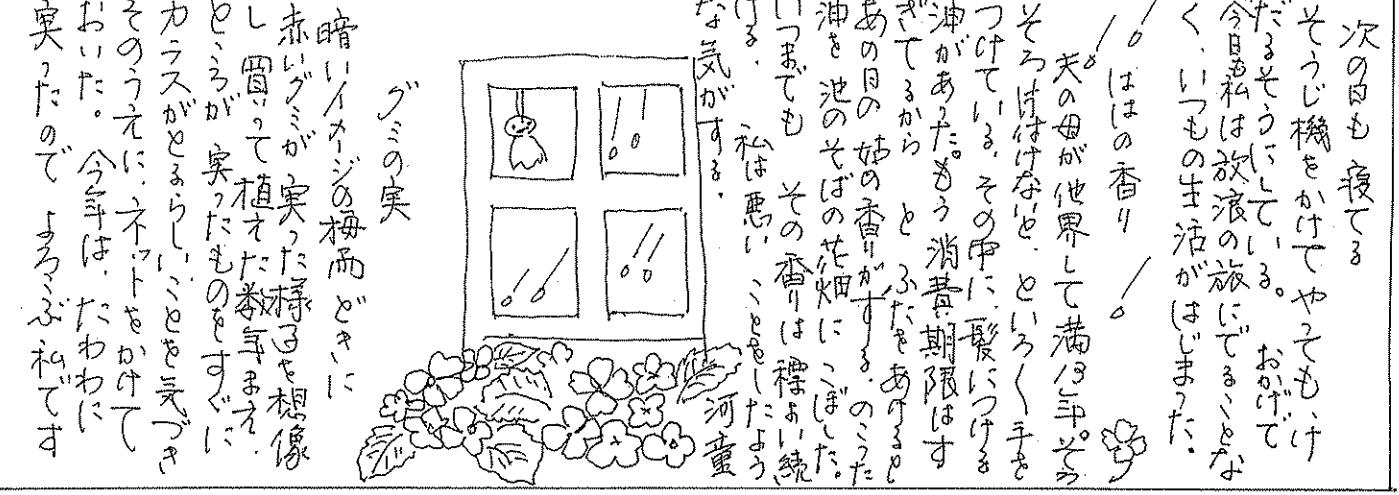 次の日も 寝てる
そうじ機をかけてやっても、け
だるそうにしている。 おかげで
今日も私は放浪の旅にでることな
く、いつもの生活がはじまった。
ははの香り
夫の母が他界して満13年。そろ
そろ片付けないと、といろいろ手を
つけている。その中に、髪につける
油があった。もう 消費期限はす
ぎてるから と ふたをあけると
あの日の 姑の香りがする。のこった
油を 池のそばの花畑に こぼした。
いつまでも その香りは漂よい続
ける。 私は悪い ことをしたよう
な気がする。
河童
グミの実
暗いイメージの梅雨どきに
赤いグミが 実った様子を想像
し 買って 植えた数年まえ。
ところが 実ったものをすぐに
カラスがとるらしいことを気づき
そのうえに、ネットをかけて
おいた。 今年は、たわわに
実ったので よろこぶ 私です